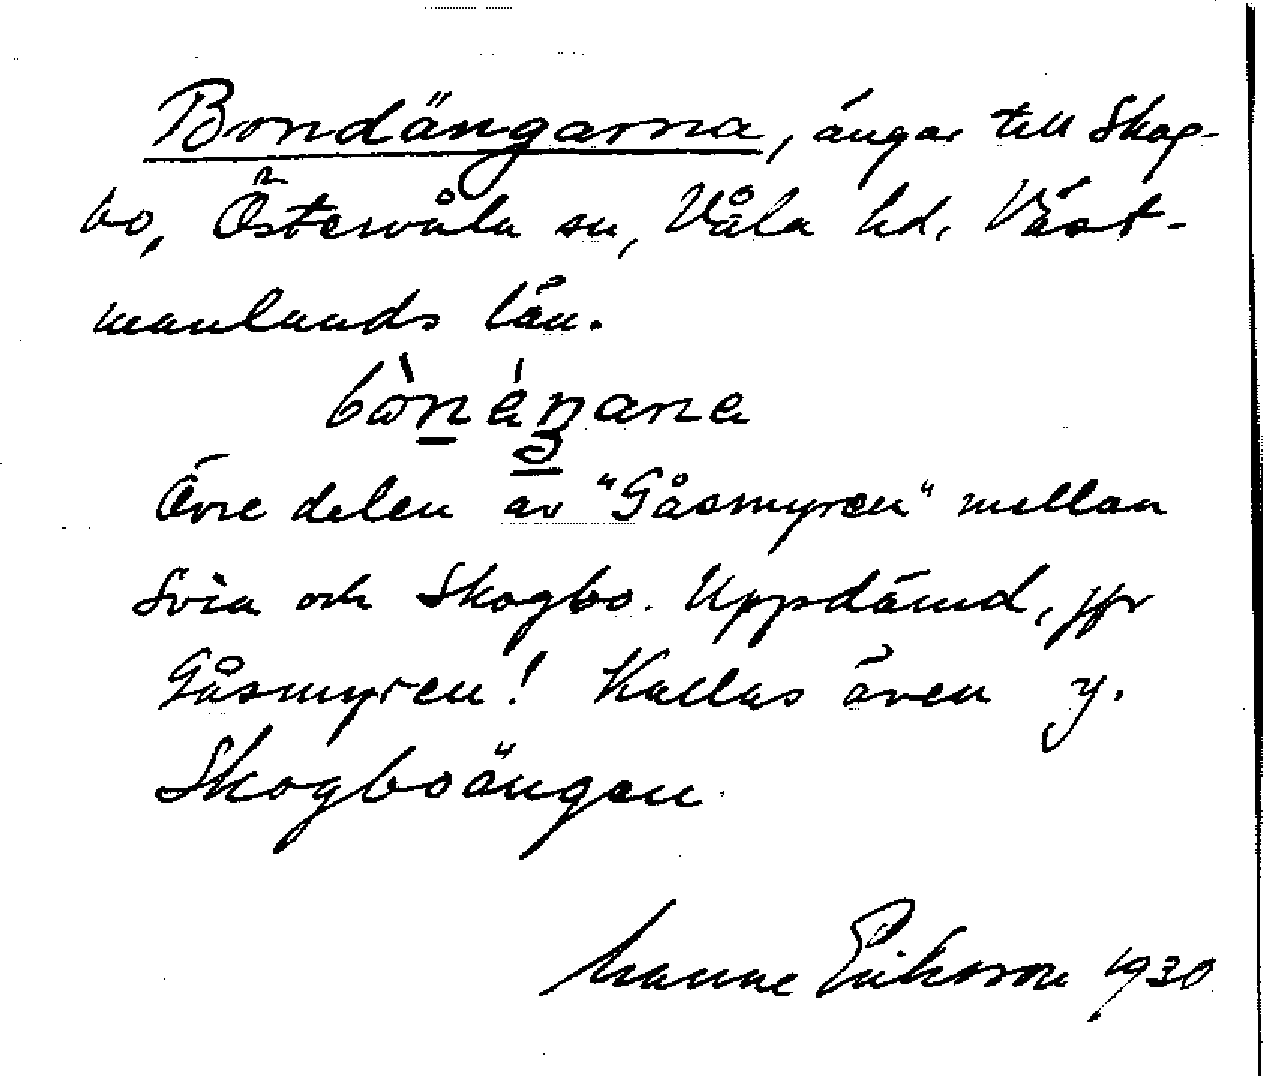 Bondängarna, ängar till Skog-
bo, Östervåla sn, Våla hd, Väst-
manlands län.
Övre delen av "Gåsmyren" mellan
Svia och Skogbo. Uppdämd, jfr
Gåsmyren! Kallas även
Skogboängen
Manne Eriksson 1930